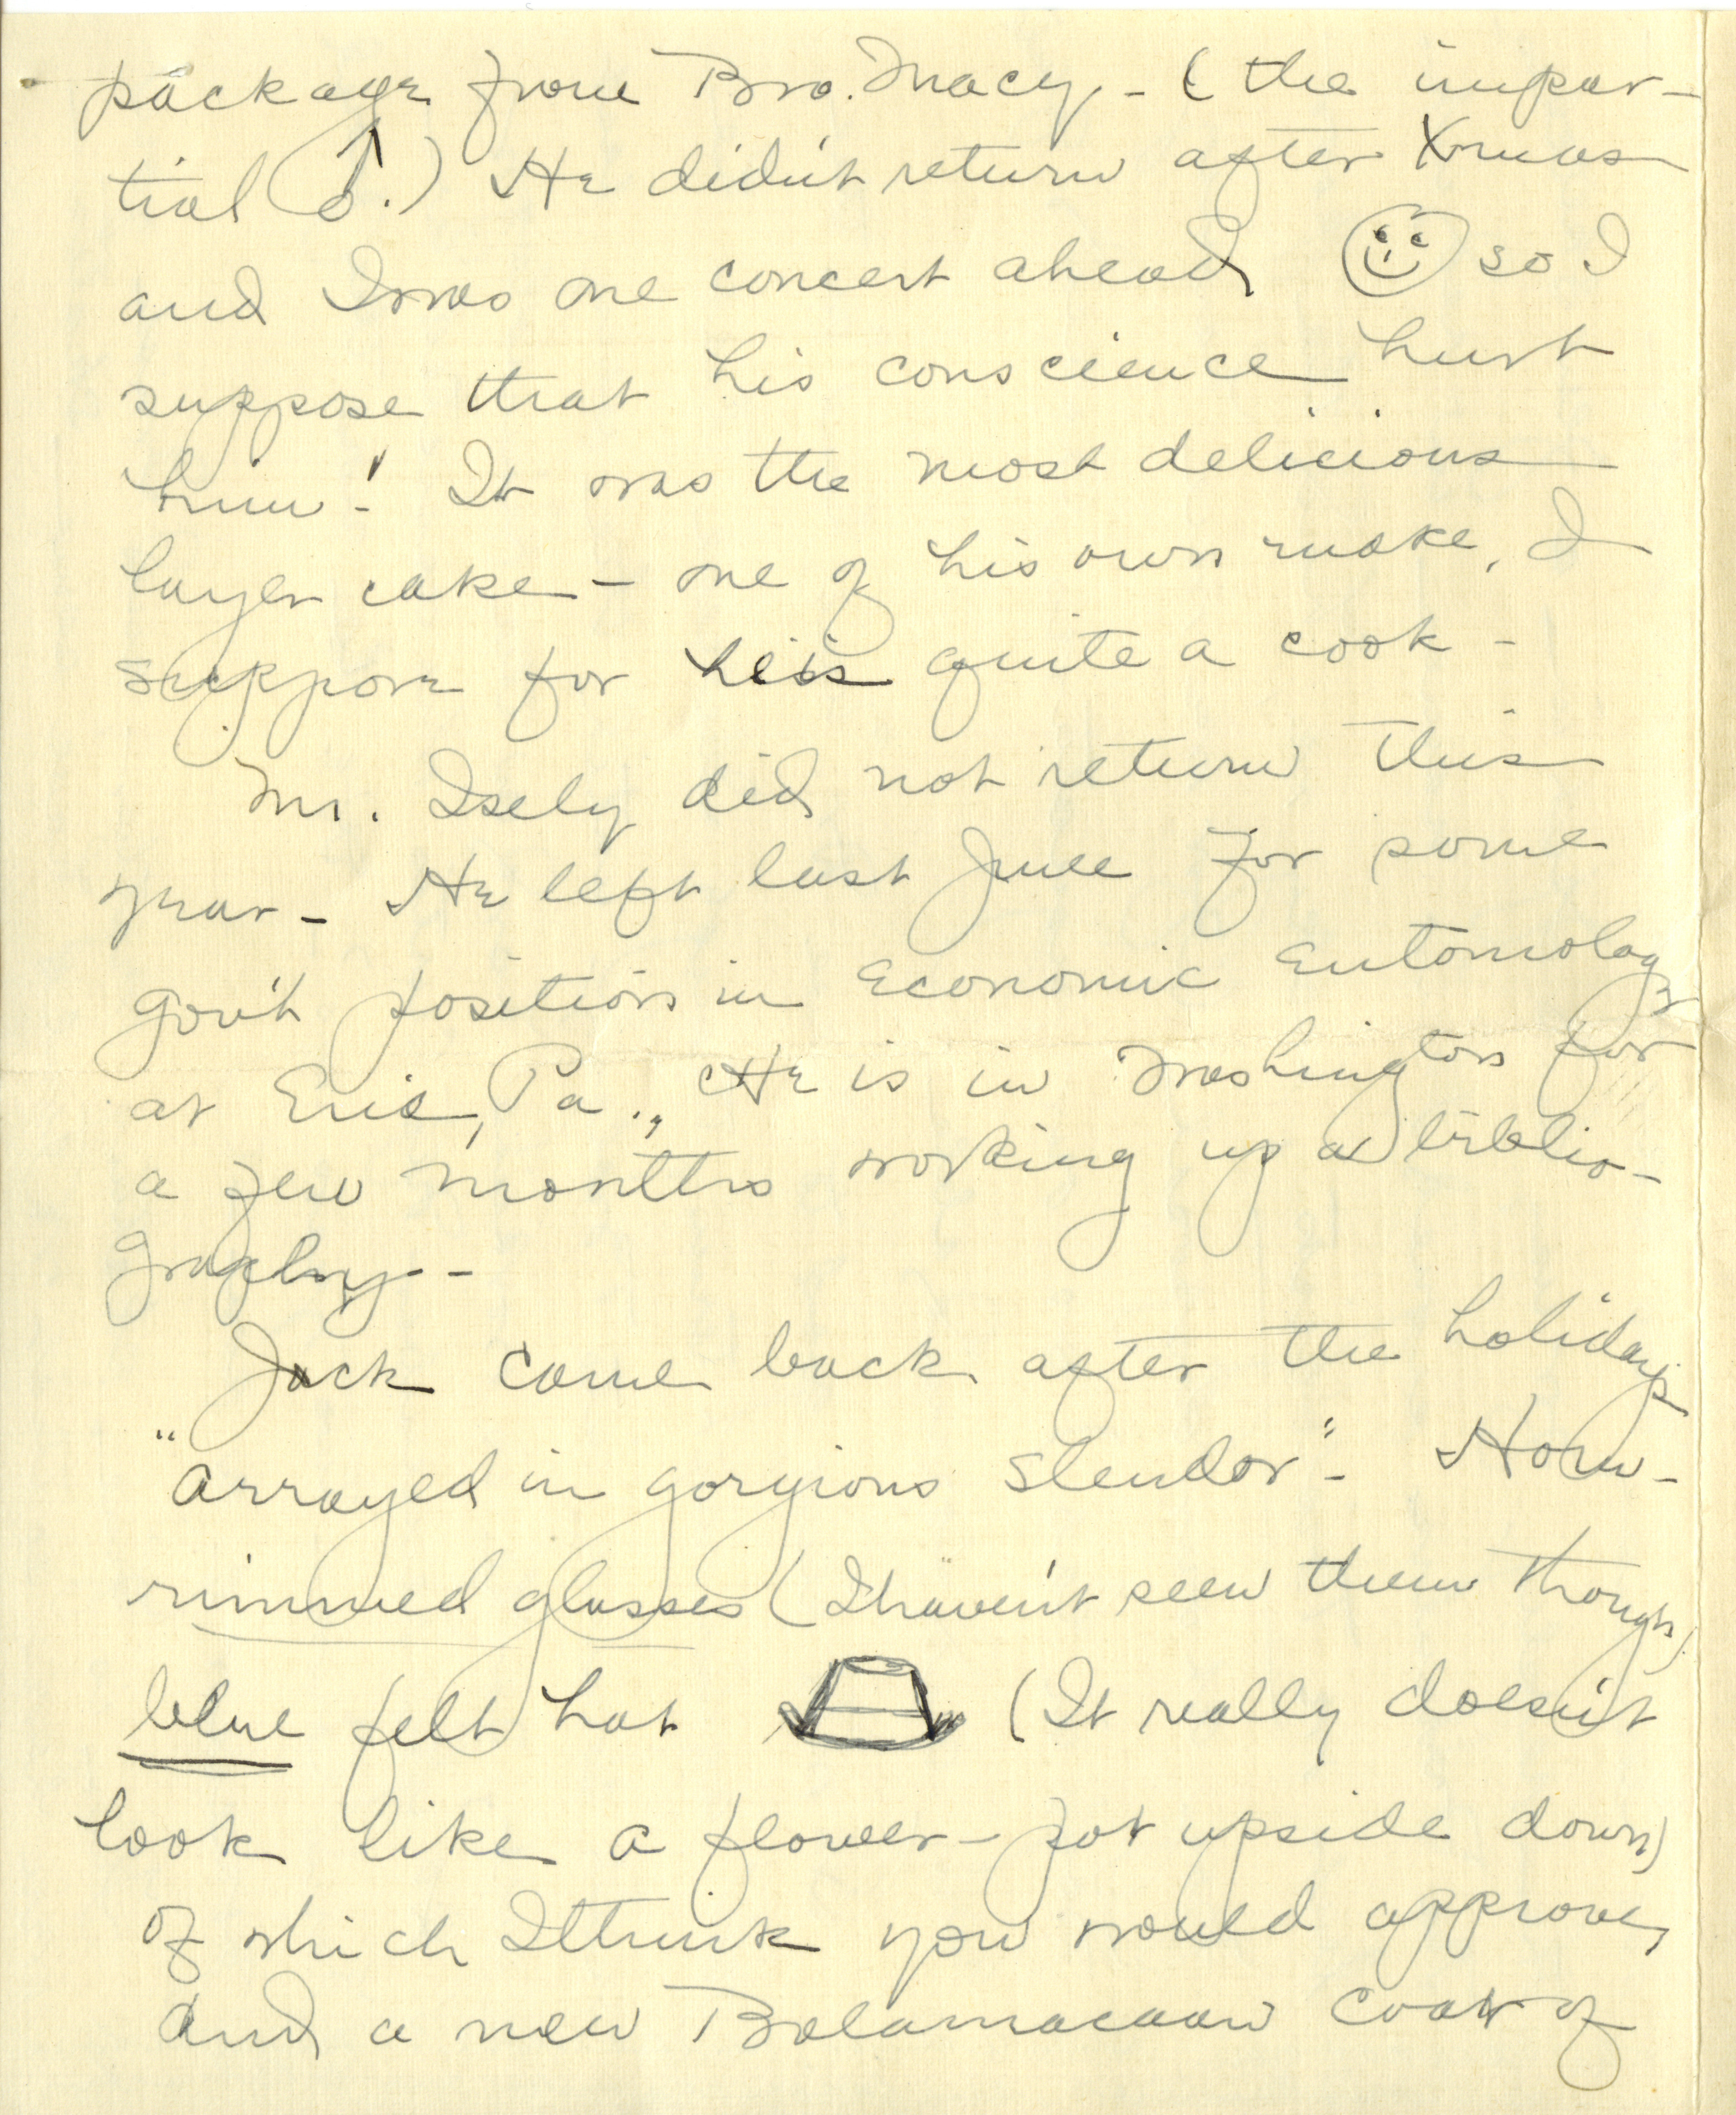 package from Bro. Macy - (the impar-
tial ♂.) He didn't return after Xmas
and I was one concert ahead so I
suppose that his conscience hurt
him! It was the most delicious
layer cake - one of his own make, I
suppose for he is quite a cook -
Mr. Isely did not return this
year - He left last June for some
gov't position in Economic Entomology
at Erie, Pa., He is in Washington for
a few months working up a biblio-
graphy -
Jack came back after the holidays
"arrayed in gorgious slendor" - Horn-
rimmed glasses (I haven't seen them though)
blue felt hat (It really doesn't
look like a flower-pot upside down)
of which I think you would approve,
and a new Balamacaan coat of